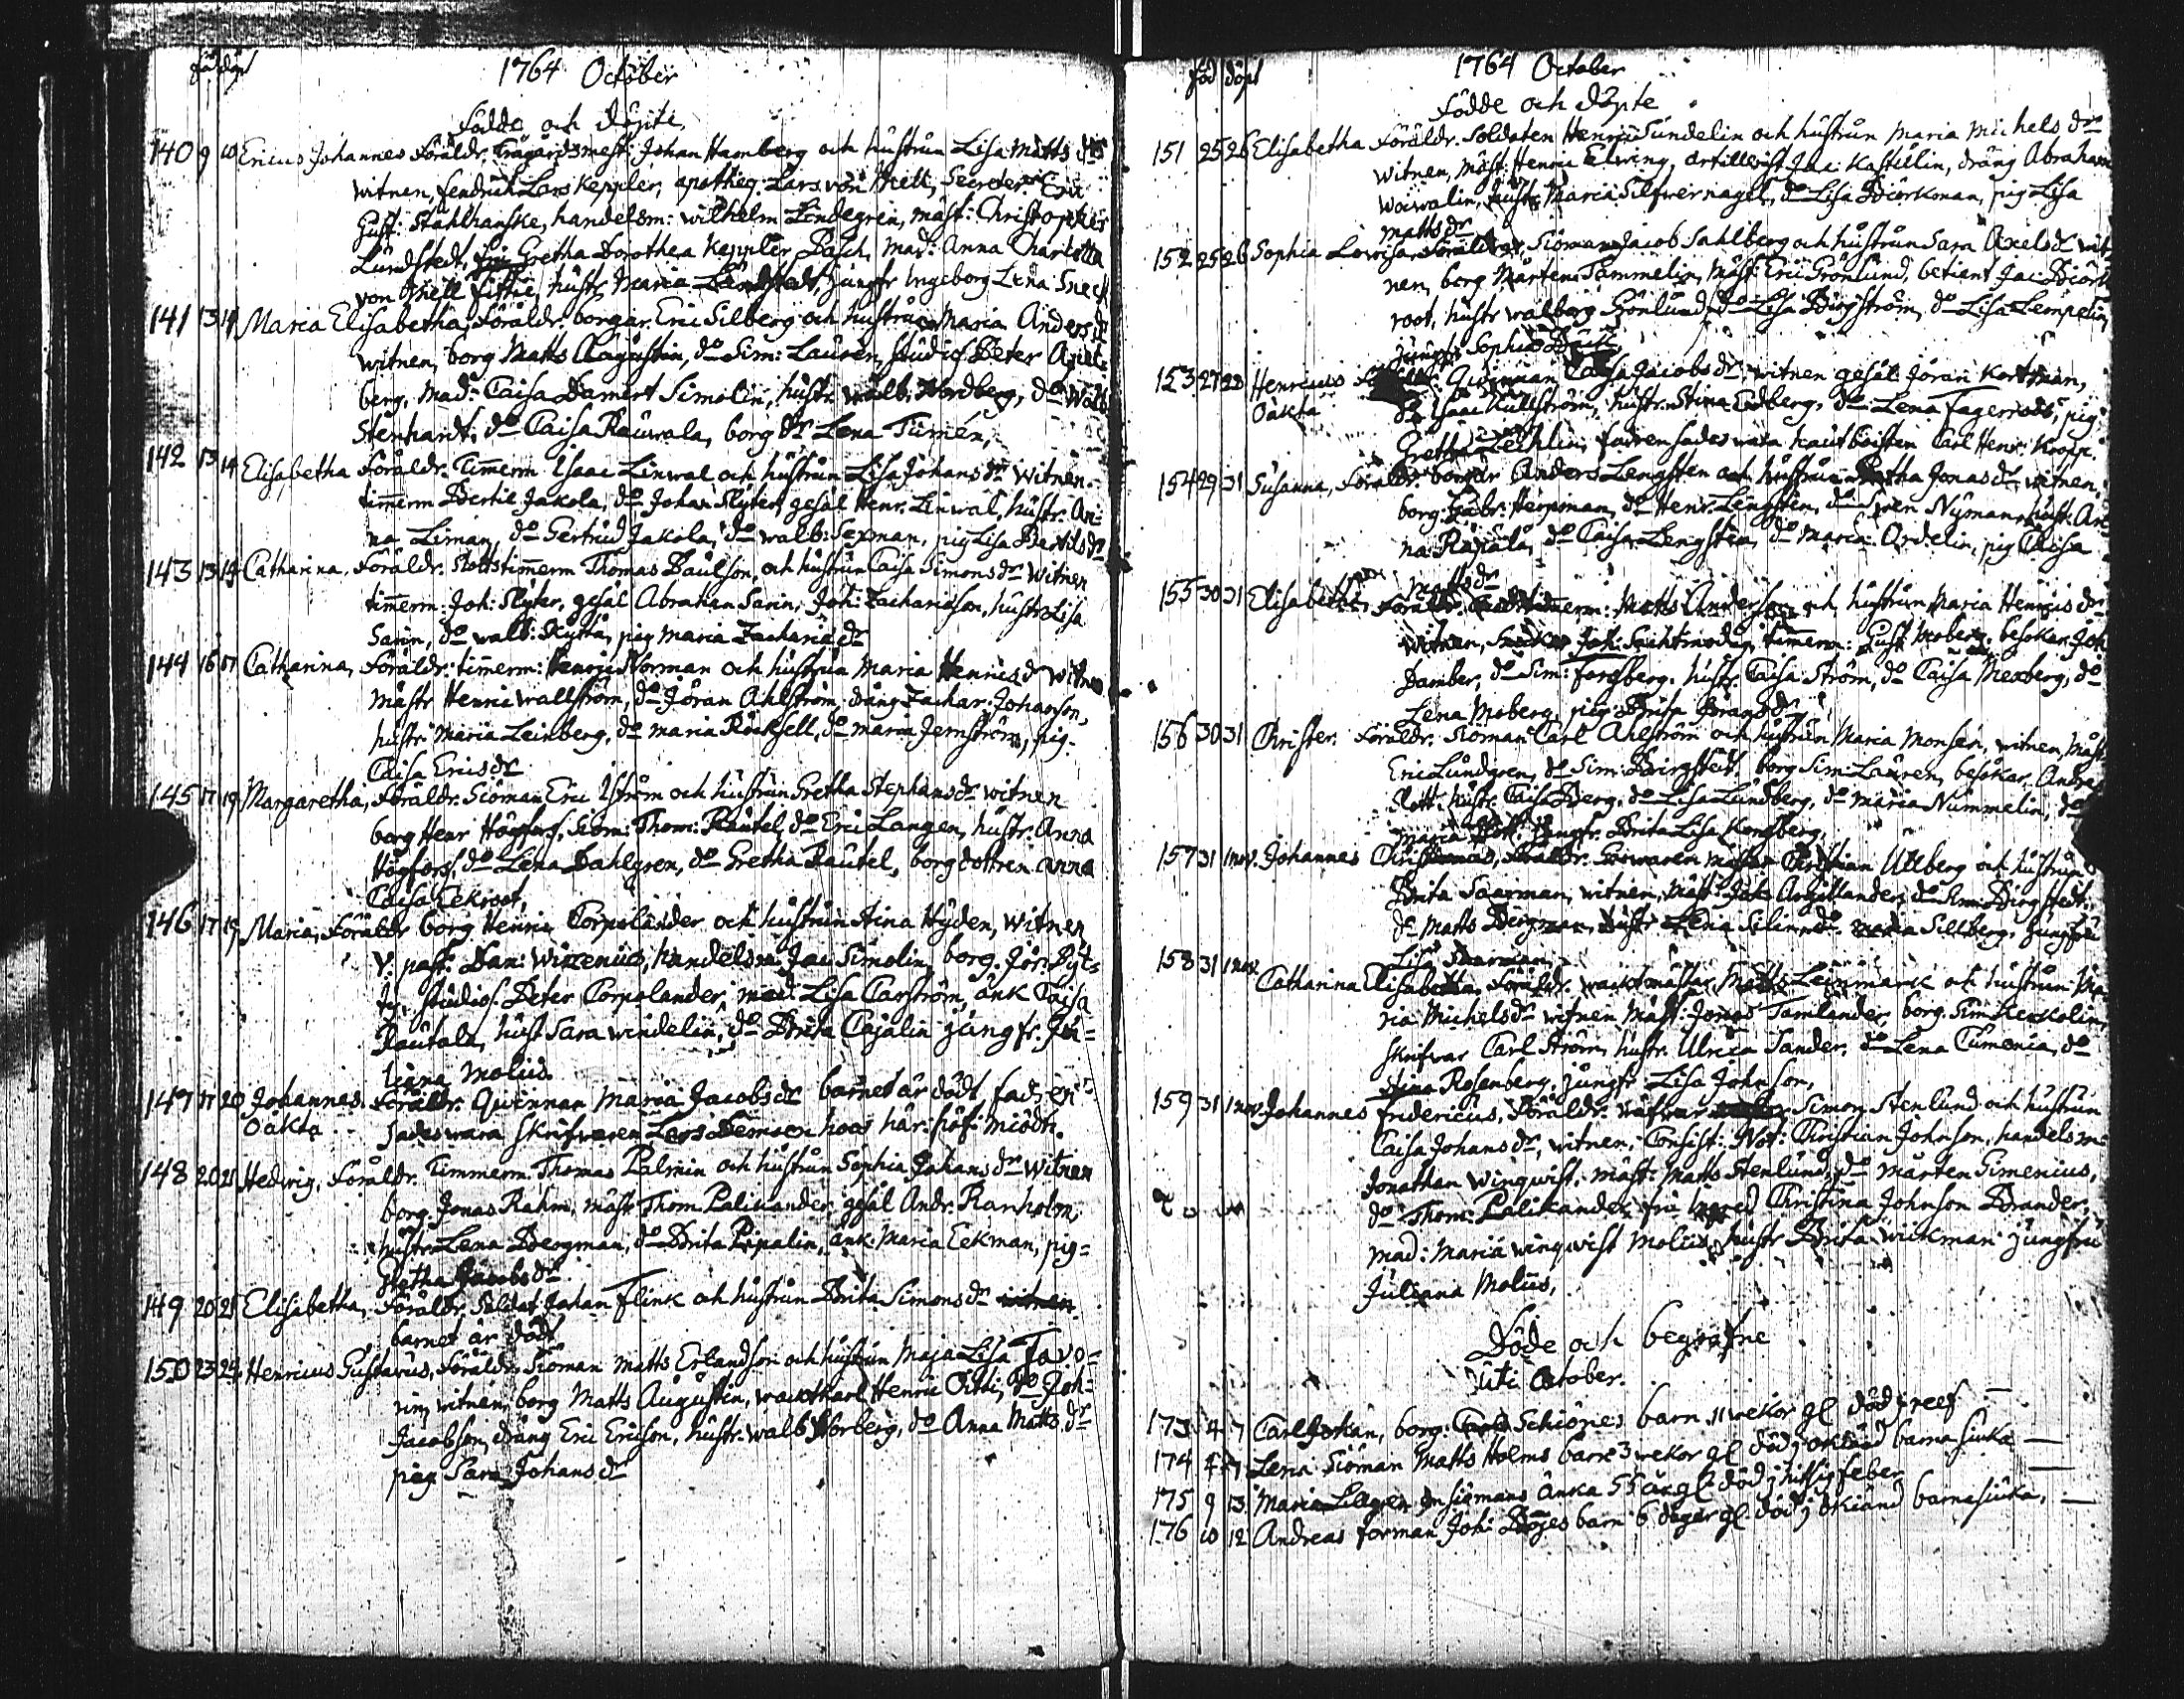 född döpt
1764 October
Födde och döpte
140 9 10 Ericus Johannes Föräldr. Trägårdsmest. Johan Hamberg och hustrun Lisa Matts dr
witnen, fendrich Lars Keppler, apotheq. Lars von Mell, Secreter Eric
Gust: Stahlhanske, handelsm: wilhelm Lindegren, mäst: Christopher
Lundstedt, fru Gretha Dorothea Keppler Pasch, mad: Anna Charlotta
von Mell, hustr. Maria Lundstedt, Jungfr Ingeborg Lena
141 13 14 Maria Elisabetha, Föräldr. borgar. Eric Silberg och hustrun Maria Anders dr
witnen, borg Matts Augustin, do Sim: Lauren, studios. Peter Axel
berg, mad: Caisa Damert Simolin, hustr. walb: Nordberg, do walb:
Stenhardt, do Caisa Rauwala, borg dr Lena Tumén,
142 13 14 Elisabetha Föräldr. Timerm Isaac Linwal och hustrun Lisa Johans dr witnen
timerm Bertil Jakola, do Johan Slyter, gesäl Henr. Linwal, hustr. An-
na Liman, do Gertrud Jakola, do walb: Sexman, pig Lisa Bertils dr
143 13 14 Catharina, Föräldr. Slottstimerm Thomas Paulson, och hustrun Caisa Simons dr witnen
timerm: Joh: Slyter, gesäl Abraham Sarin, Joh: Zachariason, hustr Lisa
Sarin, do walb: Skyttä, pig Maria Zacharia dr
144 16 17 Catharina, Föräldr: timerm: Henric Norman och hustrun Maria Henrics dr witnen
mästr Henric wallström, do Jöran Ahlström, dräng Zachar: Johanson,
hustr Maria Leinberg, do maria Röcksell, do maria Jernström, pig.
Caisa Erics dr
145 17 19 Margaretha, Föräldr. Siöman Eric Iström och hustrun Gretha Stephans dr witnen
borg Henr Högfors, siöm: Thom: Rautel, do Eric Langen, hustr. Anna
Högfors, do Lena Dahlgren, do Gretha Rautel, borg dottren Anna
Caisa Eekroot,
146 17 19 Maria, Föräldr borg Henric Corpolander och hustrun Stina Hyden, witnen
v: past: Dan: wirzenius, handelsm Jac Simolin, borg. Jör: Pyt-
ty, studios. Peter Corpolander, mad: Lisa Carström, änk Caisa
Rautala, hust Sara windelin, do Brita Cajalin jungfr. Ju-
liana Molius.
147 17 20 Johannes Föräldr. Qwinnan Maria Jacobs dr barnet är dödt, fadren
oäkta sades wara skrifwaren Lars hoos här: höf: miödh.
148 20 21 Hedwig, Föräldr. Timmerm. Thomas Palmin och hustrun Sophia Johans dr witnen
borg. Jonas Rahm, mästr Thom: Palikander, gesäl Andr. Ranholm,
hustr Lena Bergman, do Brita Pipalin, änk: Maria Eekman, pig-
Gretha Jacobs dr
149 20 21 Elisabetha, Föräldr. Soldat Johan Flink och hustrun Brita Simons dr witnen
barnet är dödt
150 23 24 Henricus Gustavus, Föräldr. Siöman Matts Erlandson och hustrun Maja Lisa Favo-
rin, witnen, borg Matts Augustin, wacktkarl Henric Oitti, do Joh:
Jacobson, dräng Eric Ericson, hustr. walb Norberg, do Anna Matts dr
pig Sara Johans dr
föd döpt
1764 October
Födde och döpte
151 25 26 Elisabetha Föräldr. Soldaten Henric Sundelin och hustrun Maria Michels dr
witnen, mäst: Henric Elwing, artillerist Jac: Kastulin, dräng Abraham
Woiwalin, hustr Maria Silfwernagel, do Lisa Biörkman, pig Lisa
Matts dr
152 25 26 Sophia Lovisa Föräldrar, Siöman Jacob Sahlberg och hustrun Sara Axels dr wit-
nen, borg Mårten Tammelin, mäst: Eric Grönlund, betient Jac: Biörk
root, hustr walborg Grönlund, do Lisa Bergström, do Lisa Lempelin,
jungfr Sophia
153 27 28 Henricus Qwinnan Caisa Jacobs dr. witnen gesäl Jöran Kortman,
Oäkta do Isaac Kullström, hustr. Stina Endberg, do Lena Fagerroos, pig
Gretha Lechlin, fadren sades wara hautboisten Carl Henr: Kropp.
154 29 31 Susanna, Föräldr. borgar Anders Lengsten och hustrun Jonas dr witnen,
borg. Gabr: Herpman, do Henr. Lengsten, do Sven Nyman, hustr. An
na Rapala, do Caisa Lengsten, do maria Ordelin, pig Caisa
Matts dr
155 30 31 Elisabetha Föräldr. timerm: Matts Anderson och hustrun Maria Henrics dr
witnen, timerm: Gust Moberg, besökar. Joh
Damber, do Sim: Forsberg. hustr. Caisa Ström, do Caisa Mexberg, do
Lena Moberg, pig Brita
156 30 31 Christer. Föräldr. Siöman Carl Ahlström och hustrun Maria Monsen, witnen, mäst:
Eric Lundgren, do Sim: Bergstedt, borg Sim: Lauren, besökar. Andre
Slott. hustr. Caisa Berg, do Lisa Lundberg, do maria Nummelin, do
Maria Slott. Jungfr. Brita Lisa Konsberg,
157 31 1 nov. Johannes Christian Ulberg och hustrun
Brita Saarman, witnen, mäst: do Sim: Bergstedt,
do Matts Bergman, hustr Lena Silin, do Silberg, jungfru
Lisa Saarman,
158 31 1 nov. Catharina Elisabetha, Föräldr. wacktmästar Matts Leinmark och hustrun Ma
ria Michels dr witnen Mäst: Jonas Tamlander, borg. Sim Herkolin,
skrifwar Carl Ström, hustr. Ulrica Sander, do Lena Tumenia, do
Stina Rosenberg, jungfr Lisa Johnson,
159 31 1 nov. Johannes Fridericus, Föräldr. wäfwar Simon Stenlund och hustrun
Caisa Johans dr, witnen, Consist: Not: Christian Johnson, handelsm:
Jonathan Winqwist, mäst: Matts Stenlund, do mårten Simenius,
do Thom: Palikander, fru Christina Johnson Brander,
mad: Maria winqwist Molius, hustr Brita wickman jungfru
Juliana Molius,
Döde och begrafne
uti October.
173 4 7 Carl Johan, borg: Schiönes barn 11 wekor gl död j reef
174 4 7 Lena Siöman Matts Holms barn 3 wekor gl död j okiänd barna siuka
175 9 13 Maria Lilgren en siömans änka 55 år gl död j hitsig feber
176 10 12 Andreas forman Joh: barn 6 dagar gl. död j okiänd barnasiuka,